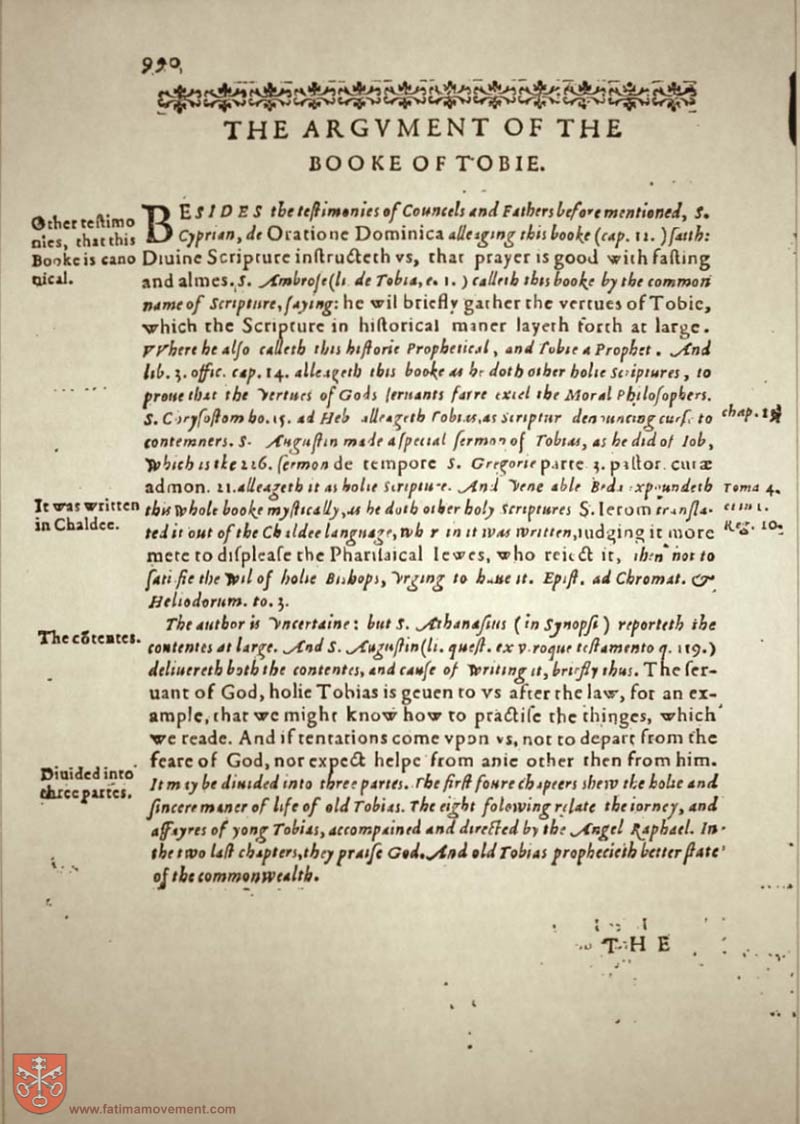 990
THE ARGVMENT OF THE
BOOKE OF TOBIE.
Other teſtimo
nies, that this
Booke is cano
nical.
BESIDES the teſtimonies of Councels and Fathers before mentioned, S.
Cyprian, de Oratione Dominica alleaging this booke (cap. 12.) ſaith:
Diuine Scripture inſtructeth vs, that prayer is good with faſting
and almes. S. Ambroſe (li. de Tobia, c. 1.) calleth this booke by the common
name of Scripture, ſaying: he wil briefly gather the vertues of Tobie,
which the Scripture in hiſtorical maner layeth forth at large.
VVhere he alſo calleth this hiſtorie Prophetical, and Tobie a Prophet. And
lib. 3. offic. cap. 14. alleageth this booke as he doth other holie Scriptures, to
proue that the vertues of Gods ſeruants farre excel the Moral Philoſophers.
S. Chryſoſtom ho. 15. ad Heb alleageth Tobias, as Scriptur denouncing curſe to
chap.
contemners. S. Auguſtin made a ſpecial ſermon of Tobias, as he did of Iob,
Which is the 226. ſermon de tempore S. Gregorie parte 3. paſtor. curæ
admon. 21. alleageth it as holie Scripture. And Vene able Beda expoundeth
Toma 4.
It was written
in Chaldee.
this whole booke myſtically, as he doth other holy Scriptures S. Ierom tranſla-
Reg. 10.
ted it out of the Chaldee language, wh r in it was written, iudging it more
mete to diſpleaſe the Phariſaical Iewes, who reiect it, then not to
ſatiſfie the wil of holie Biſhops, vrging to haue it. Epiſt. ad Chromat. &
Heliodorum. to. 3.
The cõtentes.
The author is vncertaine: but S. Athanaſius (in Synopſi) reporteth the
contentes at large. And S. Auguſtin (li. queſt. ex vtroque teſtamento q. 119.)
deliuereth both the contentes, and cauſe of writing it, briefly thus. The ſer-
uant of God, holie Tobias is geuen to vs after the law, for an ex-
ample, that we might know how to practiſe the thinges, which
we reade. And if tentations come vpon vs, not to depart from the
feare of God, nor expect helpe from anie other then from him.
Diuided into
three partes.
It may be diuided into three partes. The firſt foure chapeers ſhew the holie and
ſincere maner of life of old Tobias. The eight folowing relate the iorney, and
affayres of yong Tobias, accompained and directed by the Angel Raphael. In
the two laſt chapters, they praiſe God. And old Tobias prophecieth better ſtate
of the commonwealth.
THE
www.fatimamovement.com